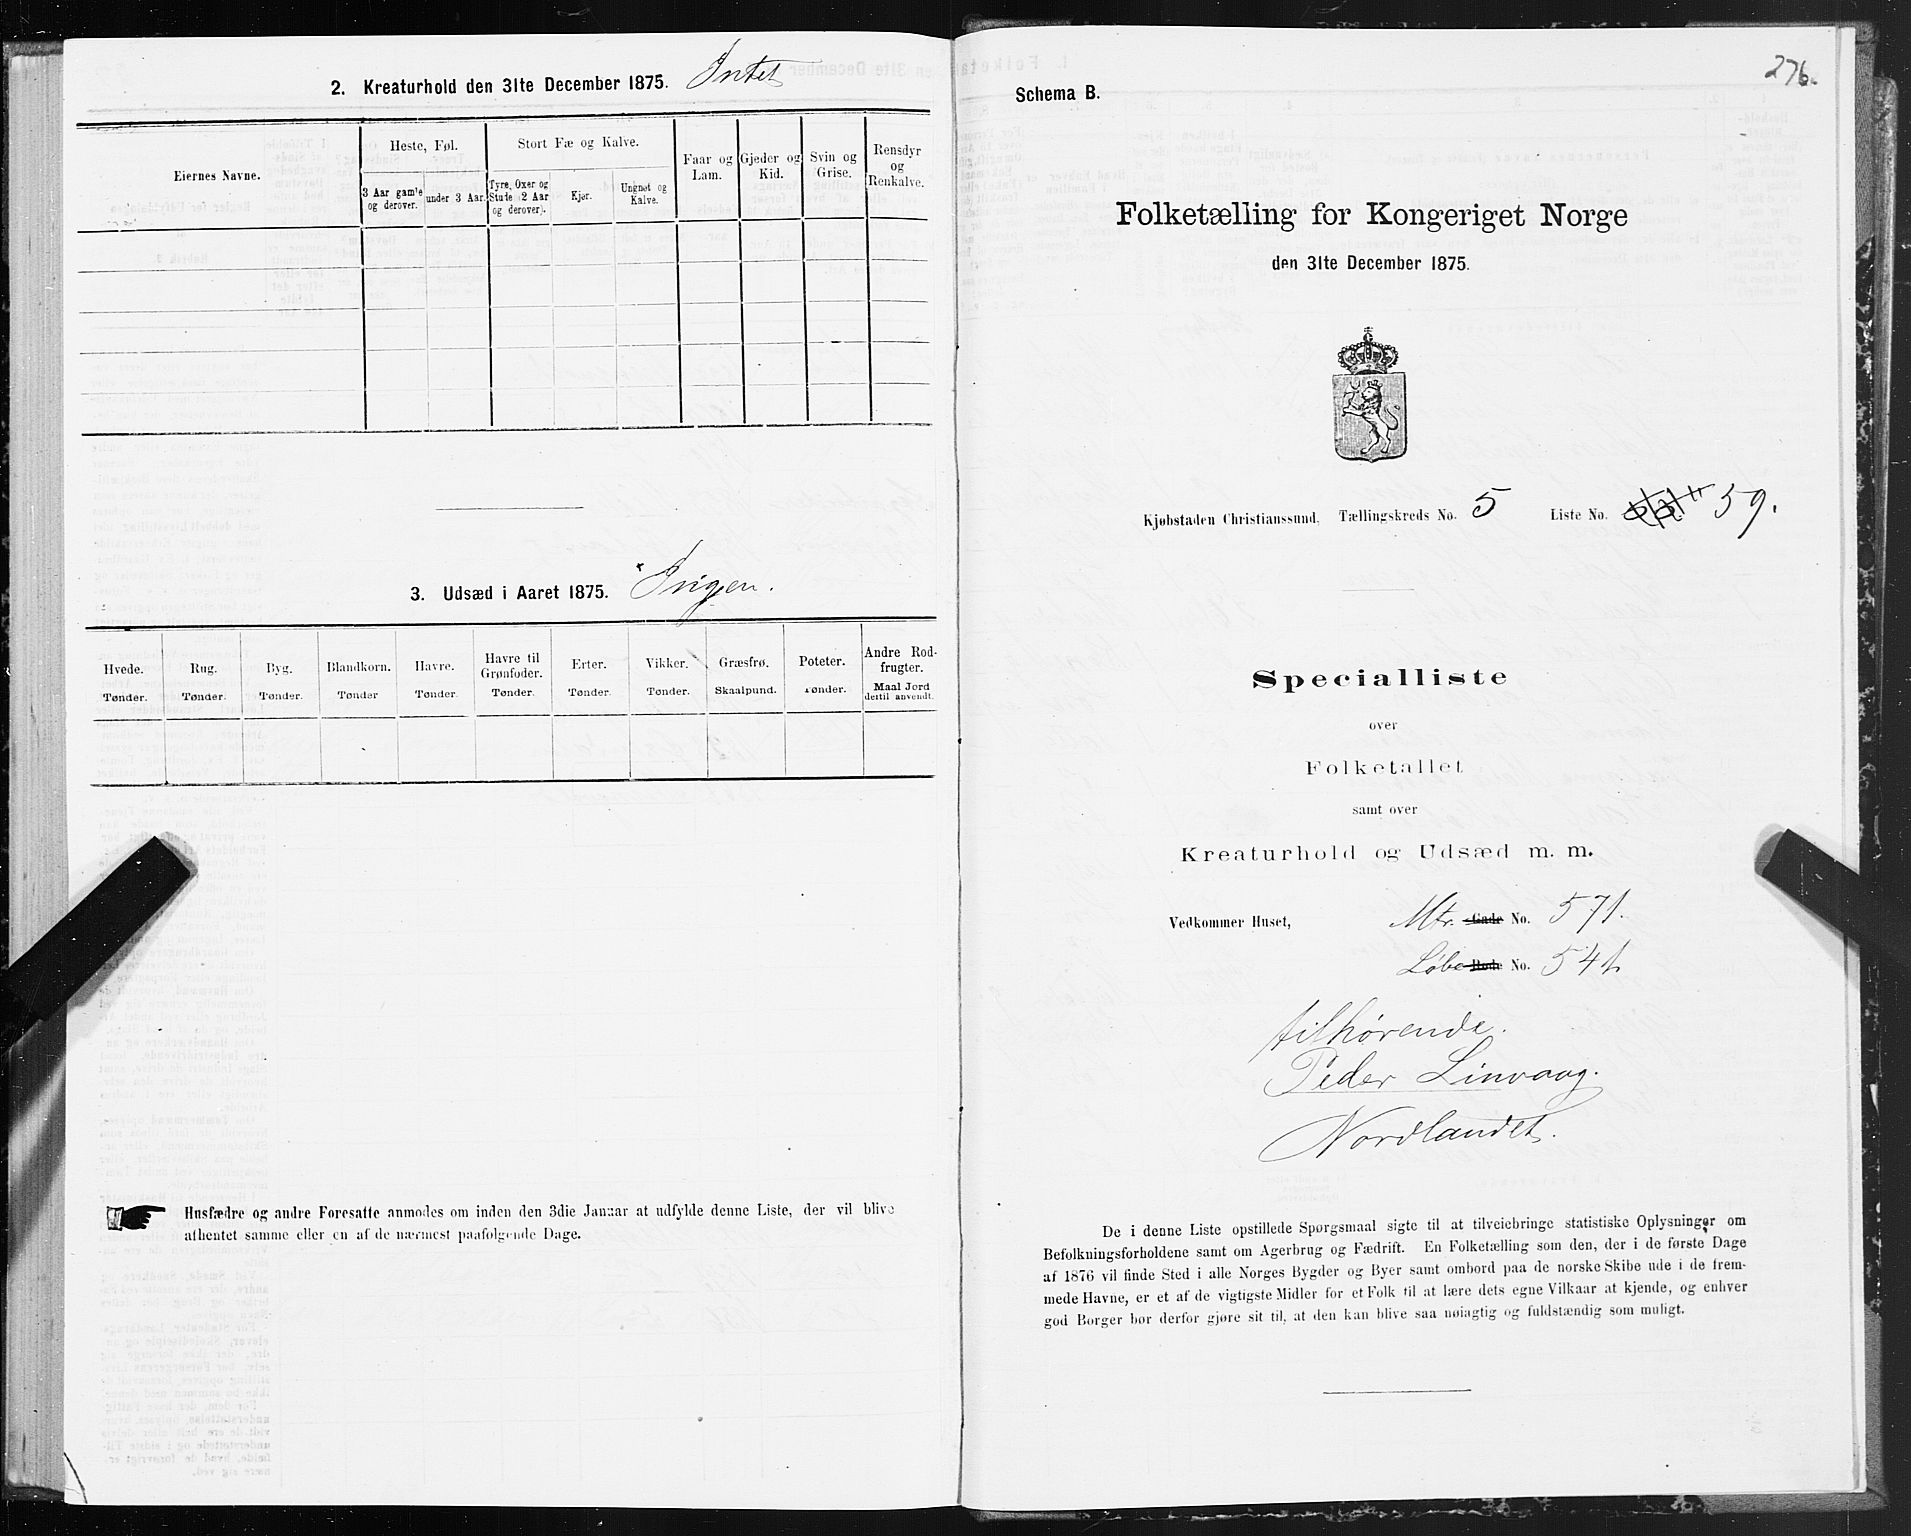 2. Kreaturhold den 31te December 1875. Intet
Eiernes Navne.
Heste, Føl.
Stort Fæ og Kalve.
Faar og Lam.
Gjeder og Kid.
Svin og Grise.
Rensdyr og Renkalve.
3 Aar gamle og derover.
under 3 Aar.
Tyre, Oxer og Stude (2 Aar og derover).
Kjør.
Ungnøt og Kalve.
3. Udsæd i Aaret 1875. Ingen.
Hvede. Tønder.
Rug. Tønder.
Byg. Tønder.
Blandkorn. Tønder
Havre. Tønder.
Havre til Grønfoder. Tønder.
Erter. Tønder.
Vikker. Tønder.
Græsfrø. Skaalpund.
Poteter. Tønder.
Andre Rodfrugter. Maal Jord dertil anvendt.
Husfædre og andre Foresatte anmodes om inden den 3die Januar at udfylde denne Liste, der vil blive
afhentet samme eller en af de nærmest paafølgende Dage.
276.
Schema B.
Folketælling for Kongeriget Norge
den 31te December 1875.
Kjøbstaden Christianssund, Tællingskreds No. 5 Liste No. 59.
Specialliste
over
Folketallet
samt over
Kreaturhold og Udsæd m. m.
Vedkommer Huset, Mtr. Gade No. 571.
Løbe Rode No. 541
tilhørende.
Peder Linvaag.
Nordlandet.
De i denne Liste opstillede Spørgsmaal sigte til at tilveiebringe statistiske Oplysninger om
Befolkningsforholdene samt om Agerbrug og Fædrift. En Folketælling som den, der i de første Dage
af 1876 vil finde Sted i alle Norges Bygder og Byer samt ombord paa de norske Skibe ude i de frem-
mede Havne, er et af de vigtigste Midler for et Folk til at lære dets egne Vilkaar at kjende, og enhver
god Borger bør derfor gjøre sit til, at den kan blive saa nøiagtig og fuldstændig som muligt.